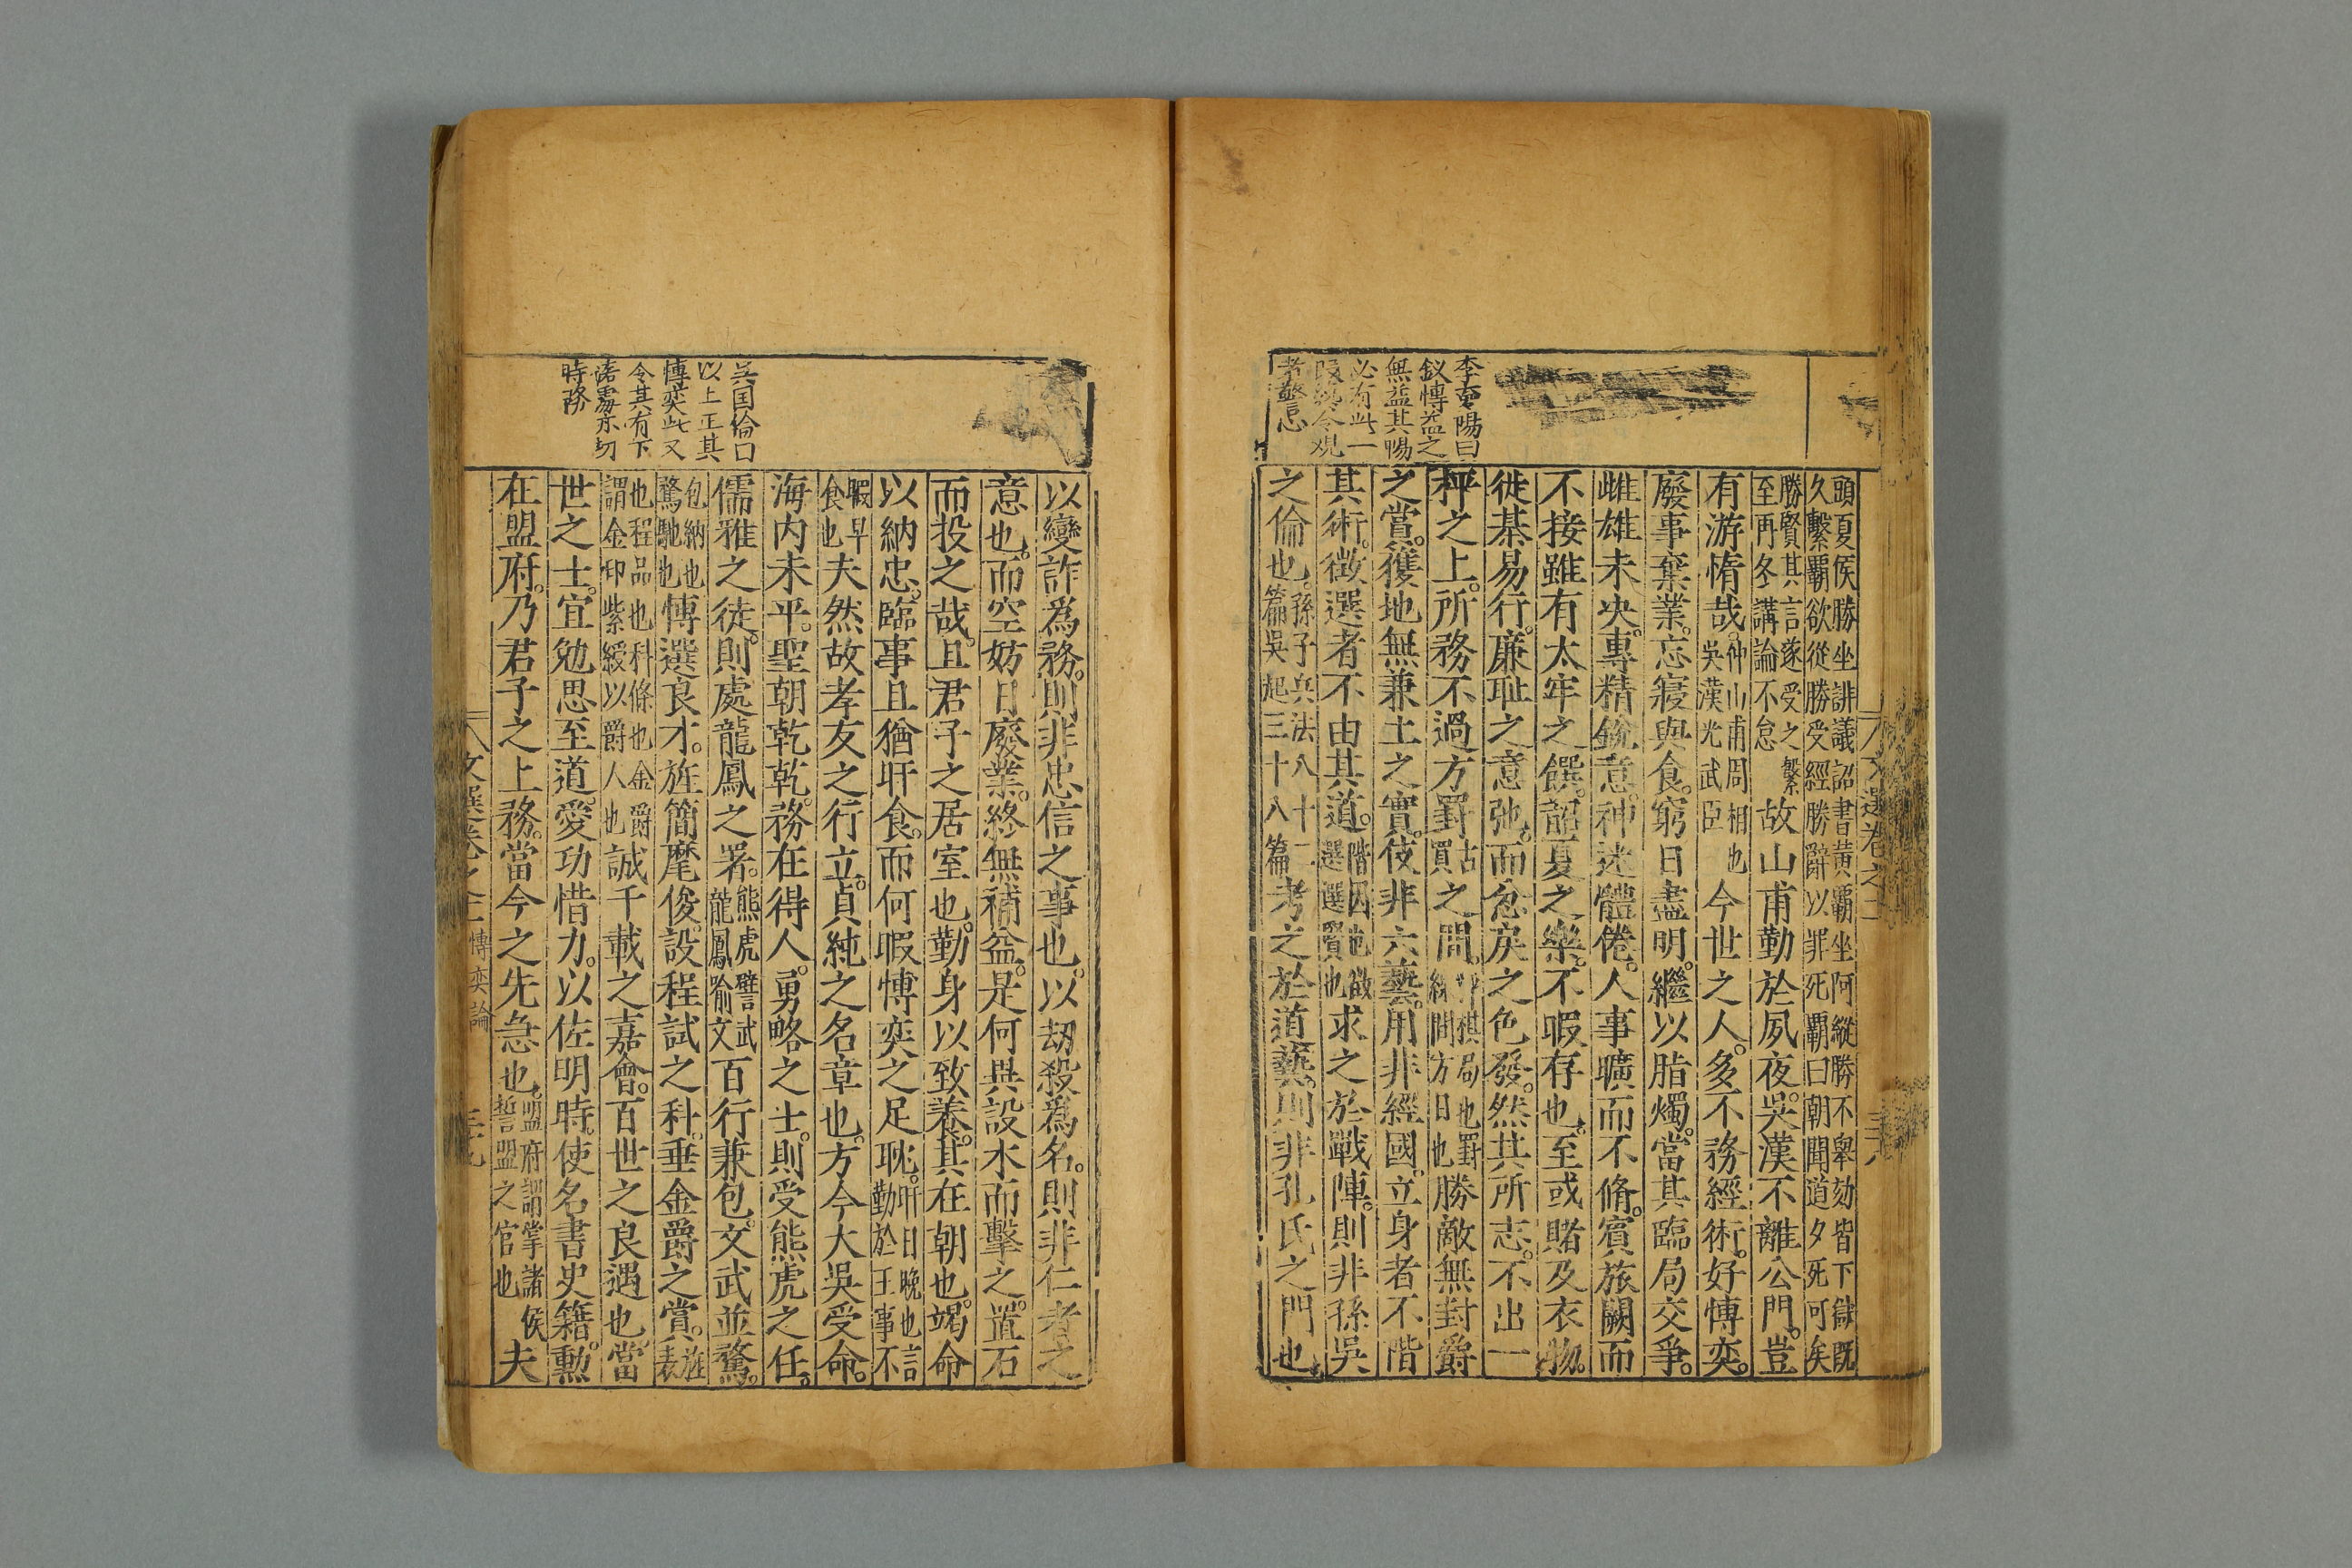 李夏陽曰
叙愽益之
無益其賜
必有此一
段
考警忌
頭夏侯勝坐誹議詔書黃霸坐阿縱勝不舉劾皆下獄既
久繫霸欲從勝受經勝辭以罪死霸曰朝聞道夕死可矣
勝賢其言遂受之繫
至再冬講論不怠
故山甫勤於夙夜。吳漢不離公門。豈
有游惰哉。
仲山甫周相也
吳漢光武臣
今世之人。多不務經術。好愽奕。
廢事棄業。忘寢與食。窮日盡明。繼以脂燭。當其臨局交爭。
雌雄未央。專精銳意。神迷體倦。人事曠而不脩。賓旅闕而
不接雖有太牢之饌。韶夏之樂。不暇存也。至或賭及衣物。
徙棊易行。廉耻之意弛。而忿戾之色發。然其所志。不出一
枰之上。所務不過方罫
古
買
之間。
枰棋局也罫
線間方目也
勝敵無封爵
之賞。獲地無兼土之實。伎非六藝。用非經國。立身者不階
其術。徵選者不由其道。
階因也徵
選選賢也
求之於戰陣。則非孫吳
之倫也。
孫子兵法八十二
篇吳起三十八篇
考之於道藝。則非孔氏之門也。
文選卷之十
三十八
吳国倫曰
以上正其
愽奕此又
令其有下
落處亦切
時務
以變詐爲務。則非忠信之事也。以刼殺爲名。則非仁者之
意也。而空妨日廢業。終無補益。是何異設木而擊之。置石
而投之哉。且君子之居室也。勤身以致養。其在朝也。竭命
以納忠。臨事且猶旰食。而何暇愽奕之足耽。
旰日晚也言
勤於王事不
暇早
食也
夫然故孝友之行立。貞純之名章也。方今大吳受命。
海内未平。聖朝乾乾。務在得人。勇略之士。則受熊虎之任。
儒雅之徒。則處龍鳳之署。
熊虎譬武
龍鳳喻文
百行兼包。文武並騖。
包納也
騖馳也
愽選良才。旌簡髦俊。設程試之科。垂金爵之賞。
旌
表
也程品也科條也金爵
謂金印紫綬以爵人也
誠千載之嘉會。百世之良遇也當
世之士。宜勉思至道。愛功惜力。以佐明時。使名書史籍。勲
在盟府。乃君子之上務。當今之先急也。
盟府謂掌諸侯
誓盟之官也
夫
文選卷之十
愽奕論